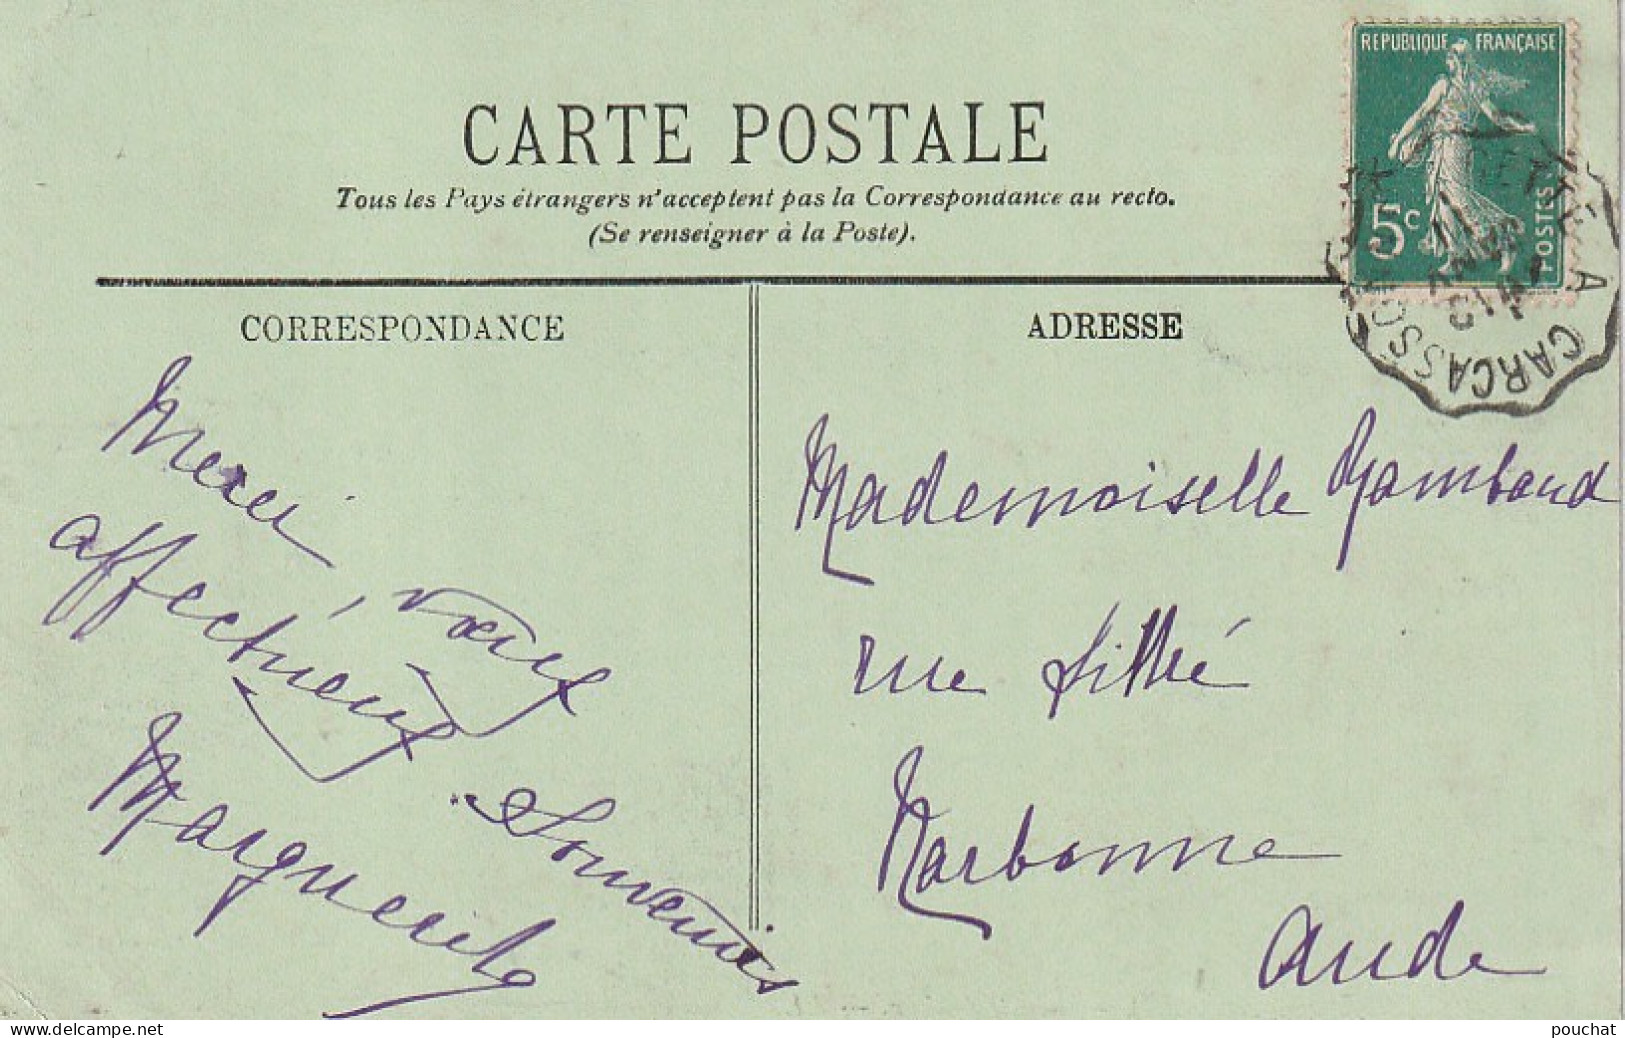 CARTE POSTALE
Tous les Pays étrangers n'acceptent pas la Correspondance au recto.
(Se renseigner à la Poste).
REPUBLIQUE FRANÇAISE
5c
POSTES
A CARCASSO
CORRESPONDANCE
ADRESSE
Merci, vœux
affectueux
Souvenirs
Marguerite
Mademoiselle
rue Littré
Narbonne
Aude
www.delcampe.net
pouchat